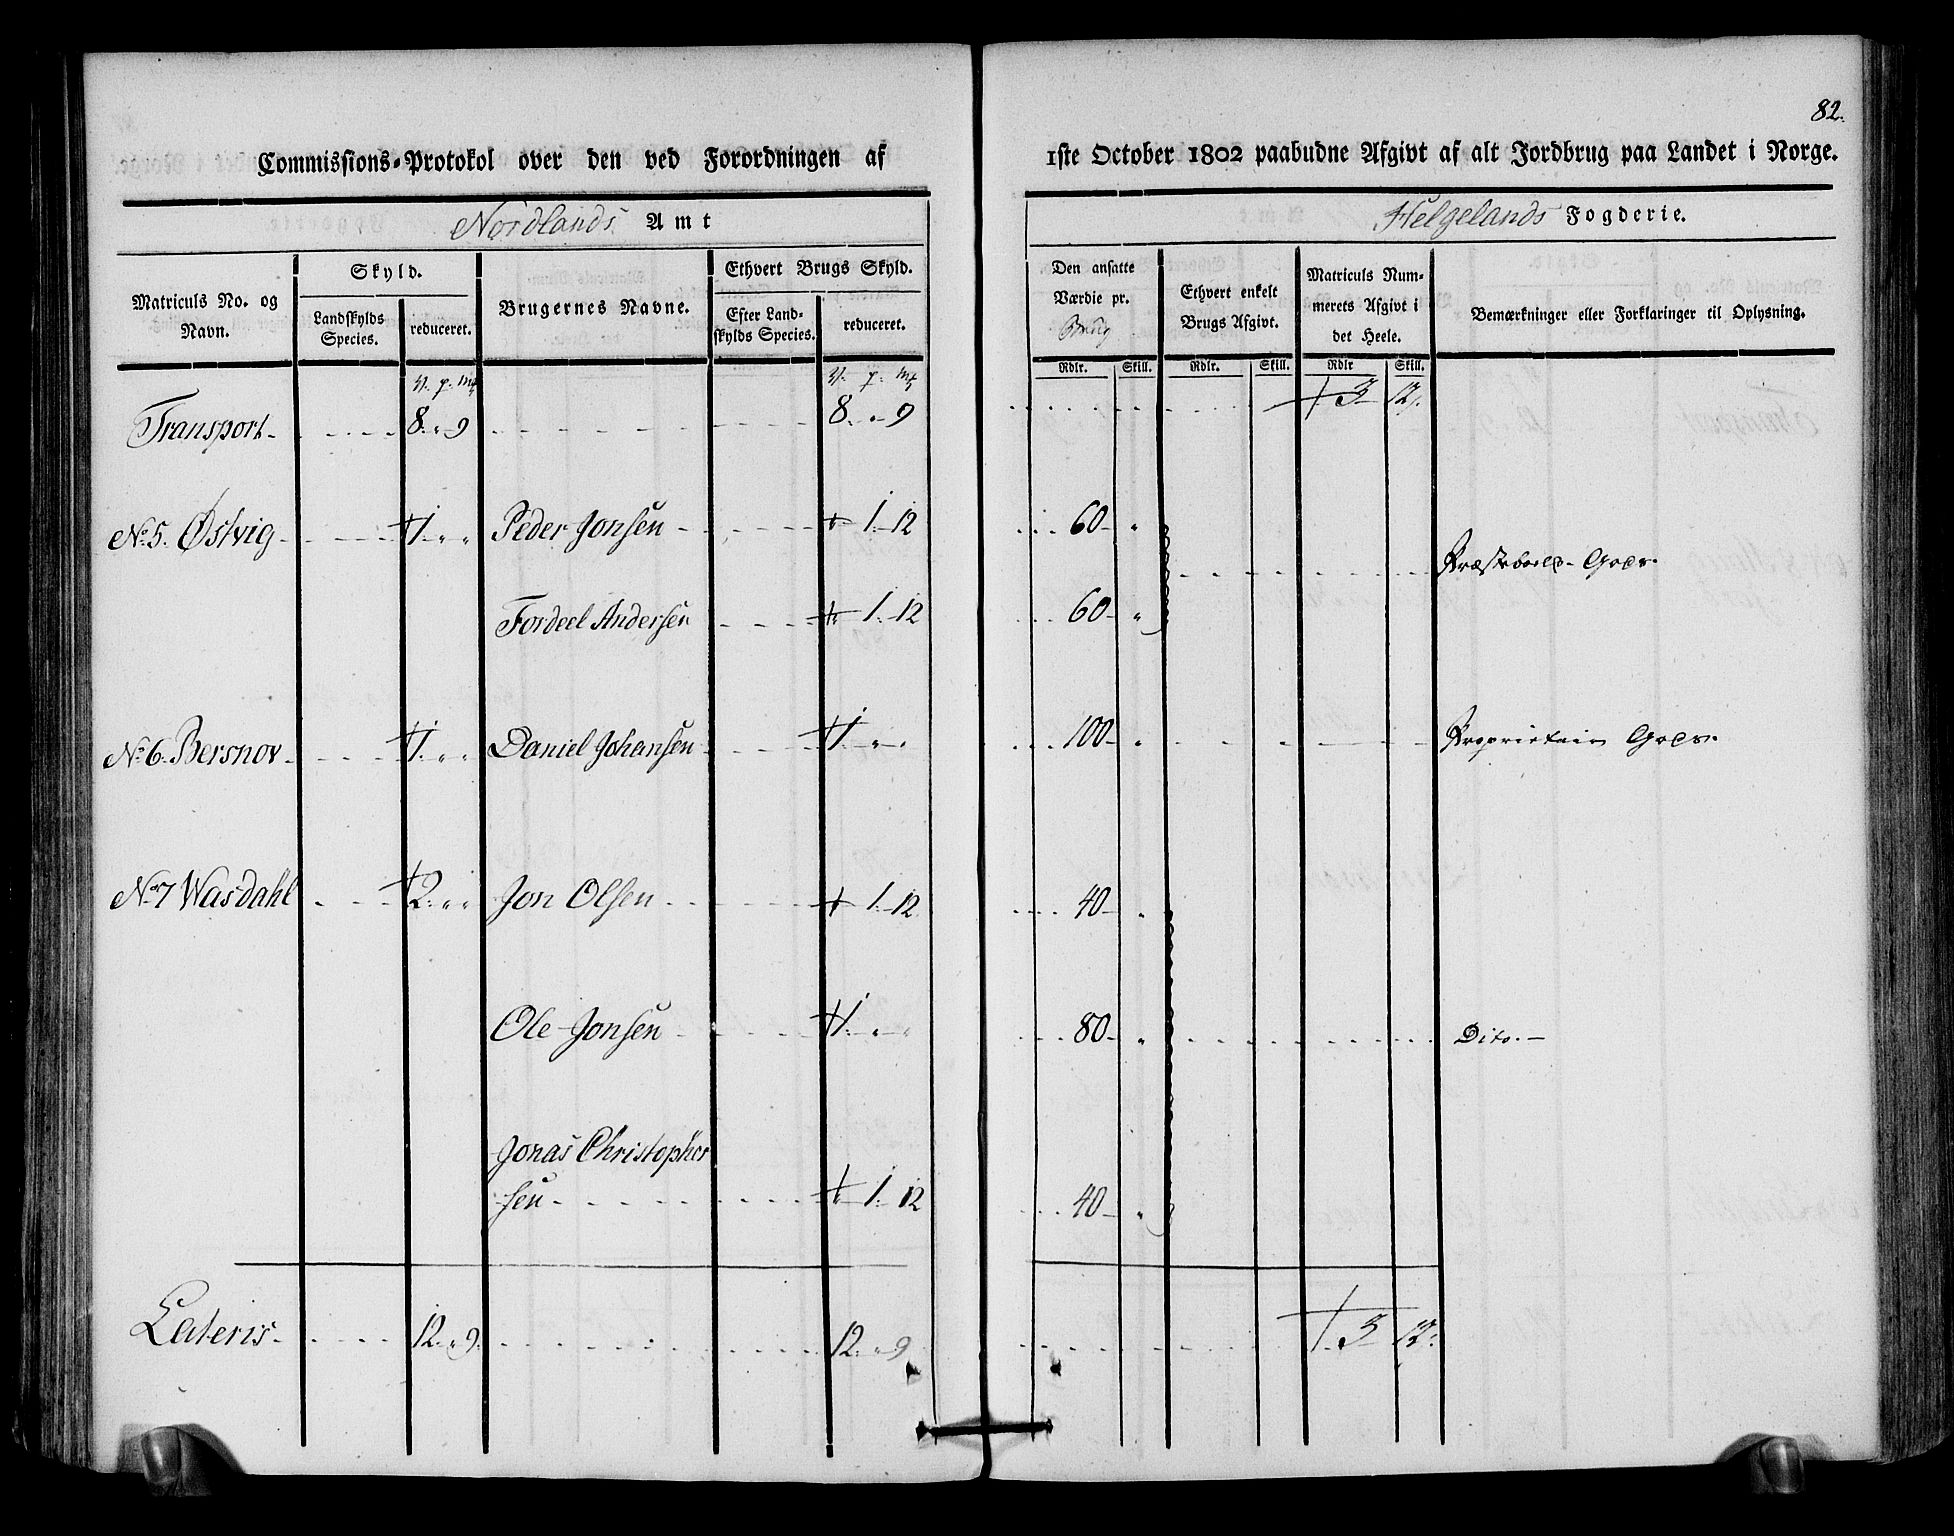 82.
Commissions-Protokol over den ved Forordningen af 1ste October 1802 paabudne Afgivt af alt Jordbrug paa Landet i Norge.
Nordlands Amt
Helgelands Fogderie.
Matriculs No. og Navn.
Skyld.
Landskylds Species.
reduceret.
Brugernes Navne.
Ethvert Brugs Skyld.
Efter Landskylds Species.
reduceret.
Den ansatte Værdie pr. Brug
Ethvert enkelt Brugs Afgivt.
Matriculs Nummerets Afgivt i det Heele.
Bemærkninger eller Forklaringer til Oplysning.
Rdlr. Skill. Rdlr. Skill. Rdlr Skill.
Transport 8. " 9 8. " 9 3 12
No. 5. Østvig 1. " " Peder Jonsen 1. 12 60 "
Præsteboels Gods.
Fordeel Andersen 1. 12 60 "
No. 6. Bersnov 1. " " Daniel Johansen 1. " " 100 " Proprietair Gods.
No. 7 Wasdahl 2. " " Jon Olsen 1. 12 40 "
Ole Jonsen 1. " " 80 " Dito.
Jonas Christopher
sen 1. 12 40 "
Lateris 12. " 9. 12. " 9 3 12.